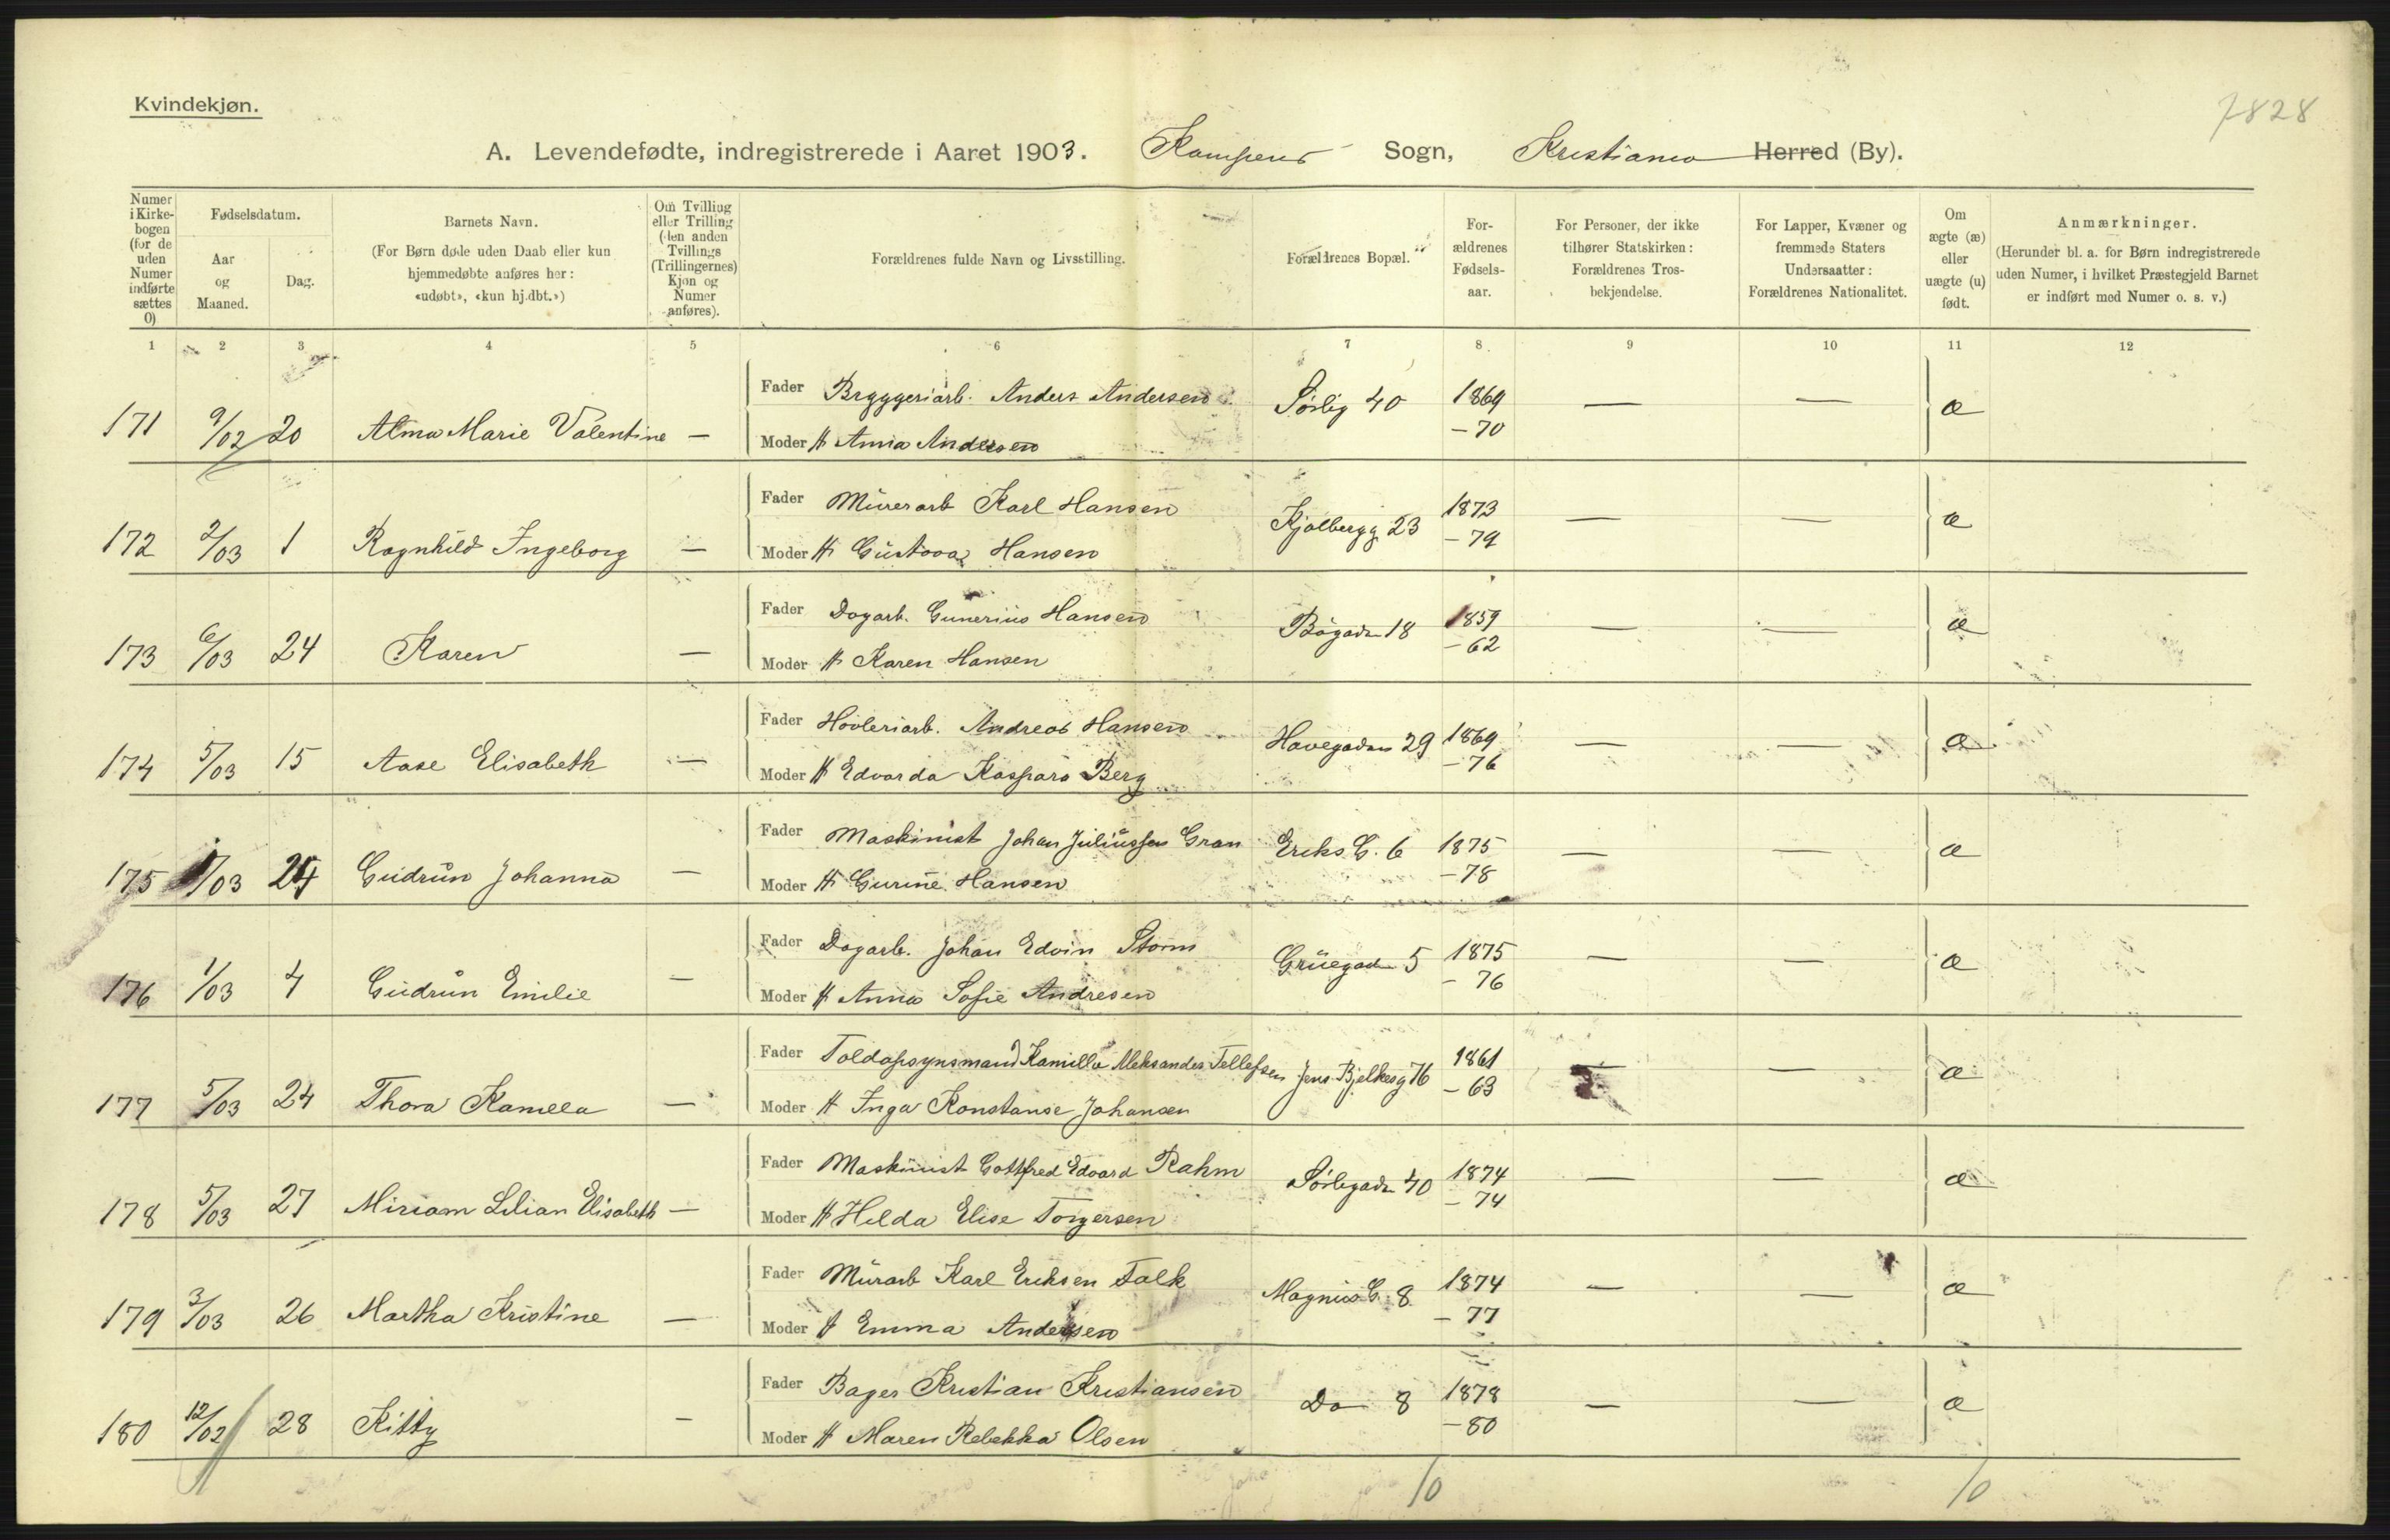 Kvindekjøn.
7828
A. Levendefødte, indregistrerede i Aaret 1903. Kampens Sogn, Kristiania Herred (By).
Numer i Kirkebogen (for de uden Numer indførte sættes 0)
Fødselsdatum.
Aar og Maaned.
Dag.
Barnets Navn.
(For Børn døde uden Daab eller kun hjemmedøbte anføres her: «udøbt», «kun hj.dbt.»)
Om Tvilling eller Trilling (den anden Tvillings (Trillingernes) Kjøn og Numer anføres).
Forældrenes fulde Navn og Livsstilling.
Forældrenes Bopæl.
Forældrenes Fødselsaar.
For Personer, der ikke tilhører Statskirken: Forældrenes Trosbekjendelse.
For Lapper, Kvæner og fremmede Staters Undersaatter: Forældrenes Nationalitet.
Om ægte (æ) eller uægte (u) født.
Anmærkninger.
(Herunder bl. a. for Børn indregistrerede uden Numer, i hvilket Præstegjeld Barnet er indført med Numer o. s. v.)
1 2 3 4 5 6 7 8 9 10 11 12
171 9/02 20 Alma Marie Valentine — Fader Bryggeriarb. Anders Andersen Sørlig 40 1869 — — æ
Moder H Anna Andersen - 70
172 2/03 1 Ragnhild Ingeborg — Fader Murerarb Karl Hansen Kjølbergg 23 1873 — — æ
Moder H Gustava Hansen - 79
173 6/03 24 Karen — Fader Dagarb. Gunerius Hansen Bøgaden 18 1859 — — æ
Moder H Karen Hansen - 62
174 5/03 15 Aase Elisabeth — Fader Høvleriarb. Andreas Hansen Havegaden 29 1869 — — æ
Moder H Edvarda Kaspara Berg - 76
175 1/03 24 Gudrun Johanna — Fader Maskinist Johan Juliussen Gran Eriks G. 6 1875 — — æ
Moder H Gurine Hansen - 78
176 1/03 4 Gudrun Emilie — Fader Dagarb. Johan Edvin Storm Grüegaden 5 1875 — — æ
Moder H Anna Sofie Andresen - 76
177 5/03 24 Thora Kamilla — Fader Toldopsynsmand Kamillo Aleksander Tellefsen Jens Bjelkesg 76 1861 — — æ
Moder H Inga Konstanse Johansen - 63
178 5/03 27 Miriam Lilian Elisabeth — Fader Maskinist Gottfred Edvard Rahm Sørligaden 40 1874 — — æ
Moder H Hilda Elise Torgersen - 74
179 3/03 26 Martha Kristine — Fader Murarb Karl Eriksen Falk Magnus G. 8 1874 — — æ
Moder H Emma Andersen - 77
180 12/02 28 Kitty — Fader Bager Kristian Kristiansen Do 8 1878 — — æ
Moder H Maren Rebekka Olsen - 80
10 10